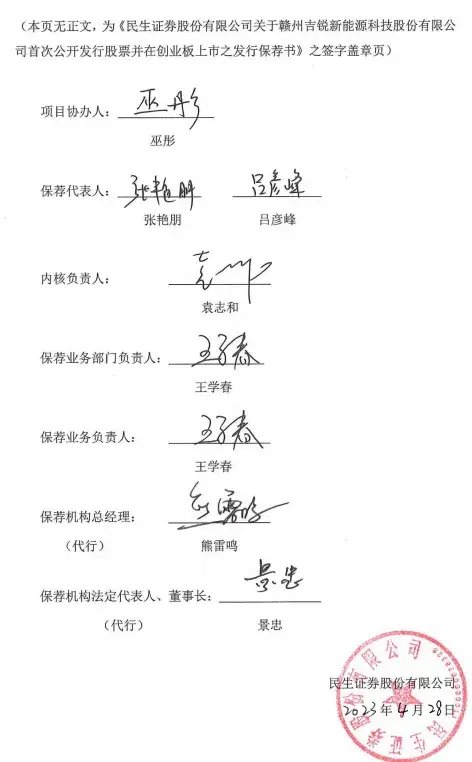 （本页无正文，为《民生证券股份有限公司关于赣州吉锐新能源科技股份有限公
司首次公开发行股票并在创业板上市之发行保荐书》之签字盖章页）
项目协办人： 巫彤
巫彤
保荐代表人： 张艳朋 吕彦峰
张艳朋 吕彦峰
内核负责人： 袁志和
袁志和
保荐业务部门负责人： 王学春
王学春
保荐业务负责人： 王学春
王学春
保荐机构总经理： 熊雷鸣
（代行） 熊雷鸣
保荐机构法定代表人、董事长： 景忠
（代行） 景忠
民生证券股份有限公司
2023年4月28日
民生证券股份有限公司